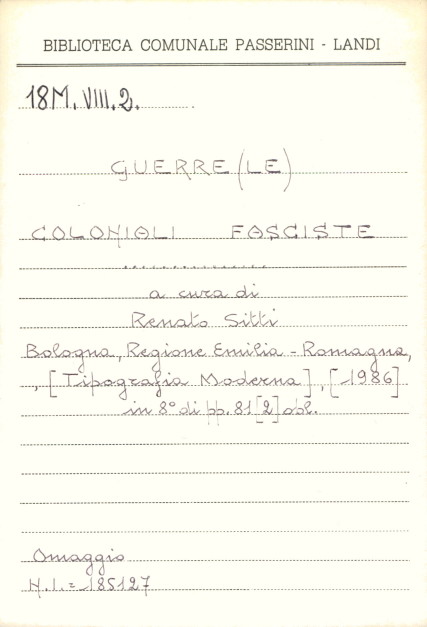 BIBLIOTECA COMUNALE PASSERINI - LANDI
18M. VIII. 2.
GUERRE (LE)
COLONIALI FASCISTE
a cura di
Renato Sitti
Bologna, Regione Emilia - Romagna,
, [Tipografia Moderna], [1986]
in 8° di pp. 81 [2] obl.
Omaggio
N.I. = 185127